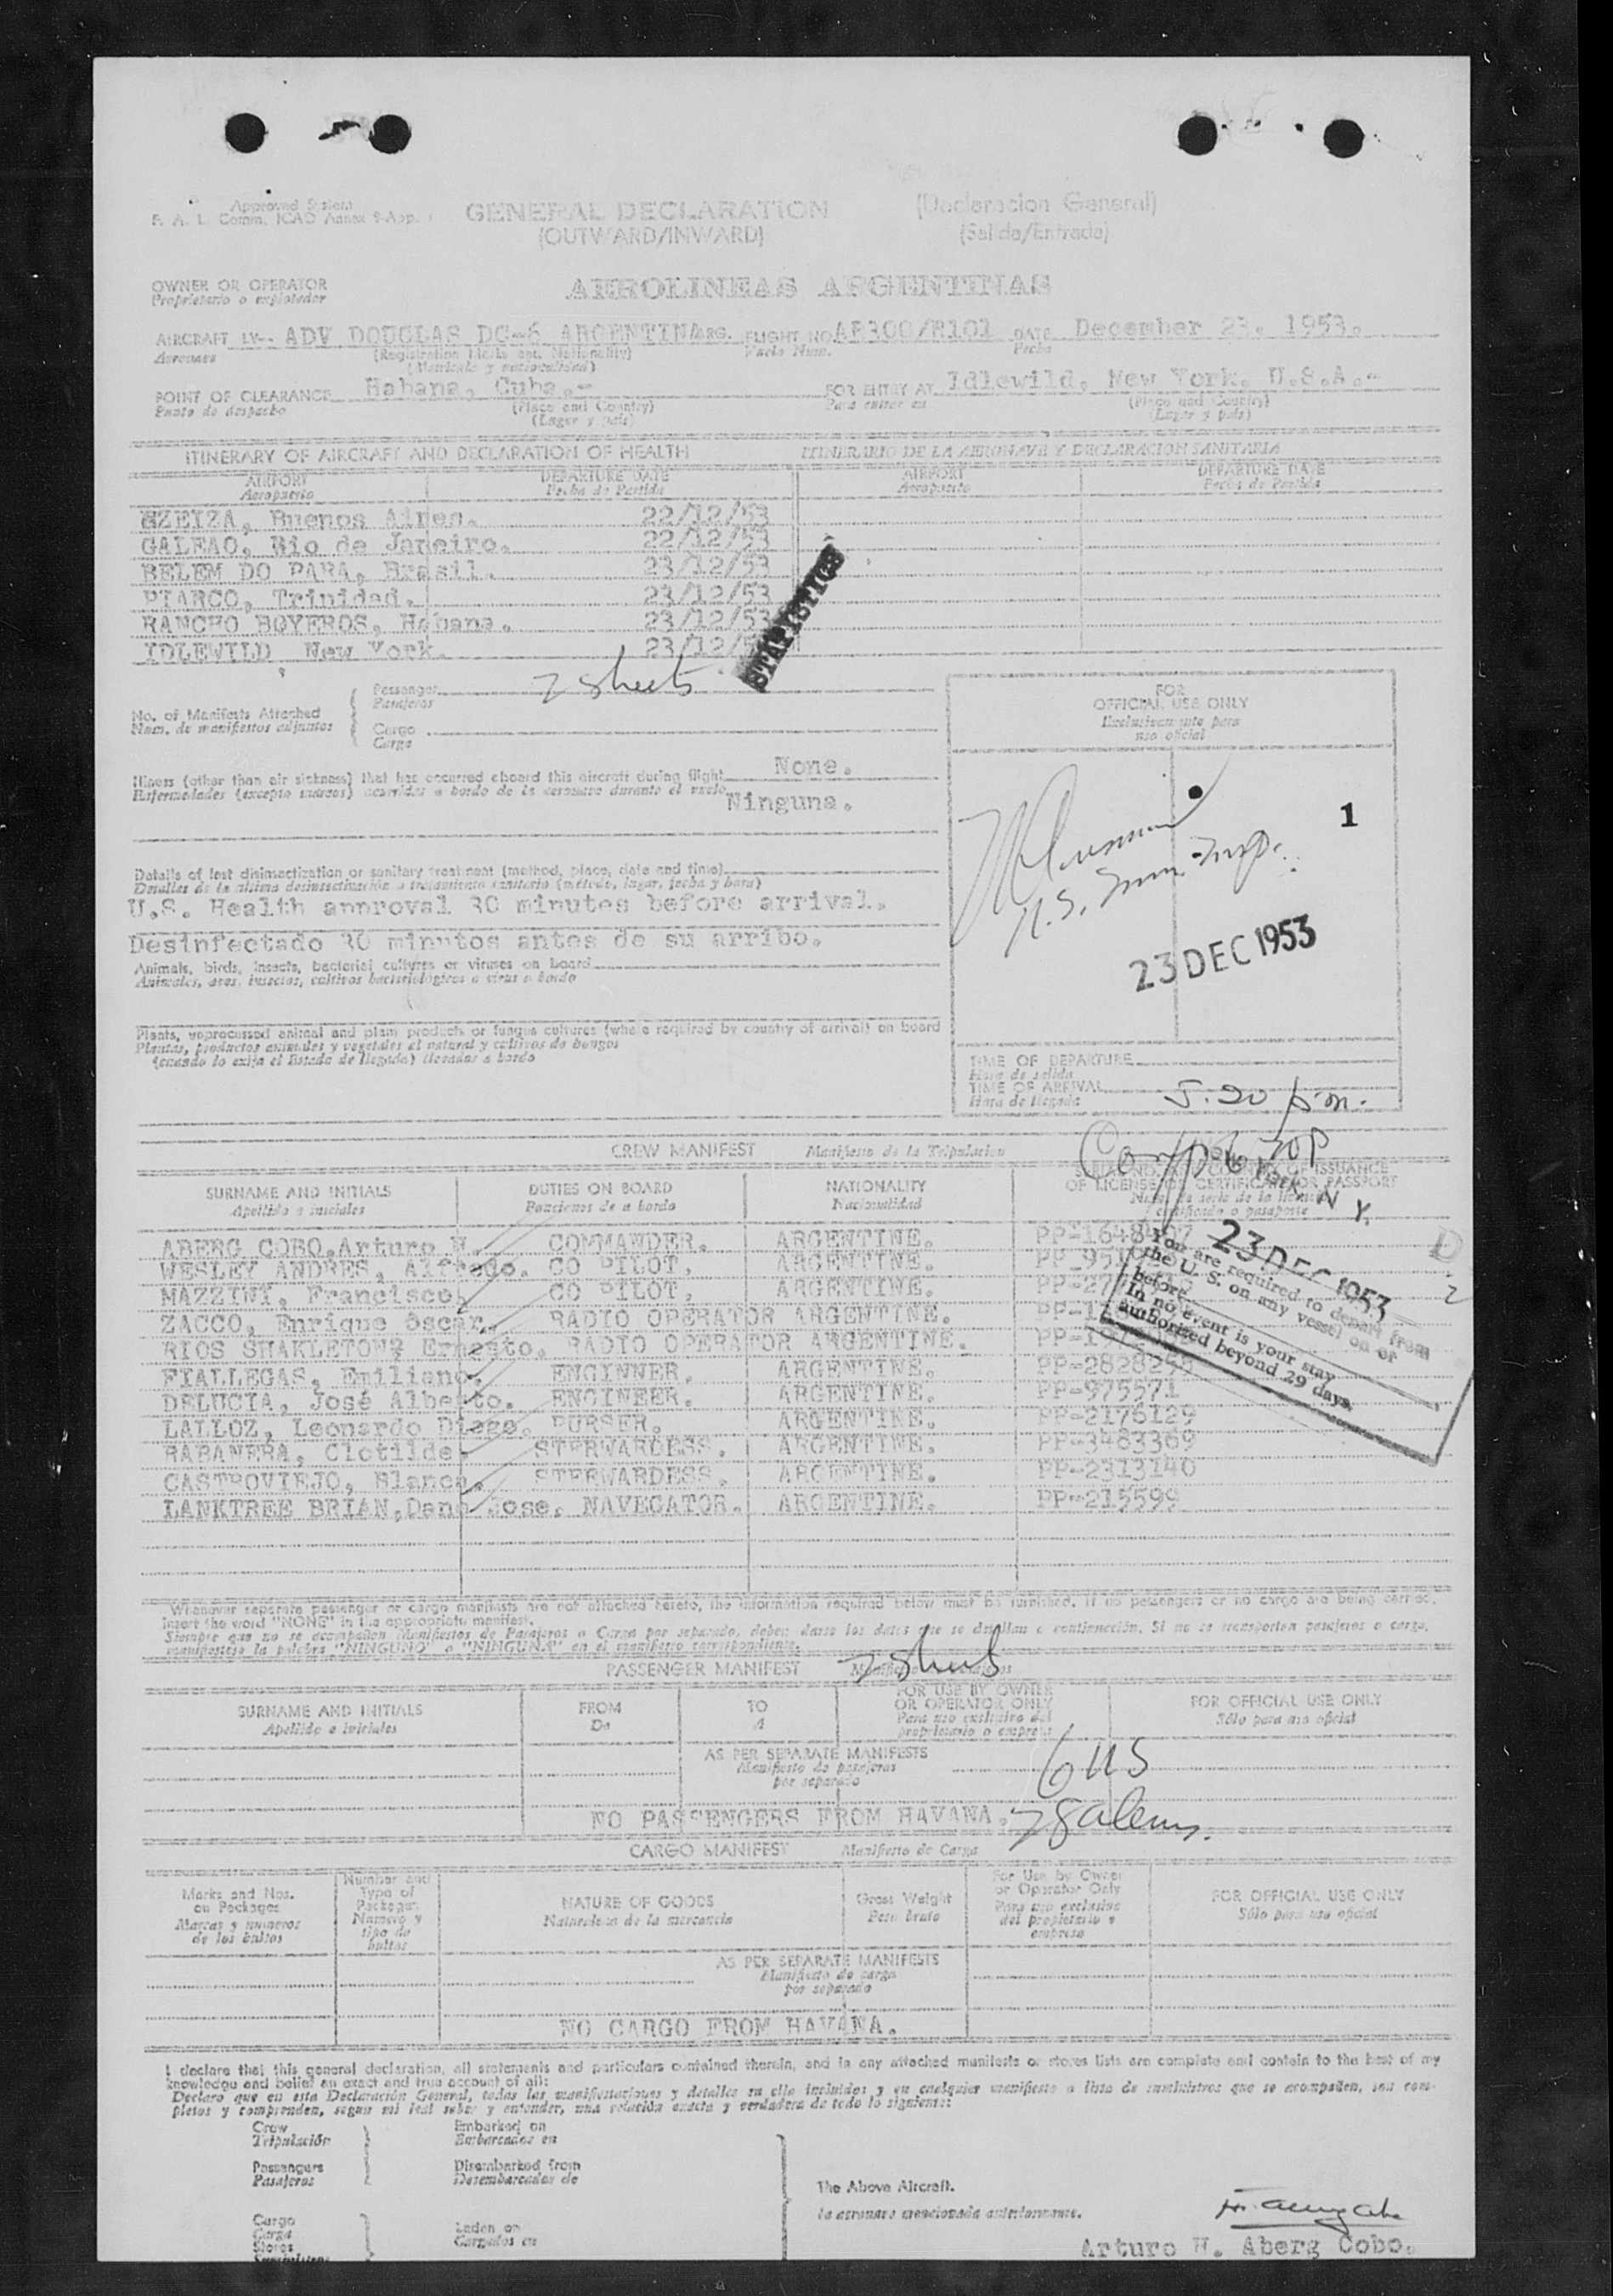 Approved System
F. A. L. Comm. ICAO Annex 9-App. 1
GENERAL DECLARATION
(Declaracion General)
(OUTWARD/INWARD)
(Salida/Entrada)
OWNER OR OPERATOR
Propietario o explotador
AEROLINEAS ARGENTINAS
AIRCRAFT LV-- ADV DOUGLAS DC-6 ARGENTINA ARG. FLIGHT NO AR300/R101 DATE December 23. 1953.
Aeronave (Registration Marks and Nationality) Vuelo Num. Fecha
(Matricula y nacionalidad)
POINT OF CLEARANCE Habana, Cuba.- FOR ENTRY AT Idlewild, New York. U.S.A.-
Punto de despacho (Place and Country) Para entrar en (Place and Country)
(Lugar y país) (Lugar y país)
ITINERARY OF AIRCRAFT AND DECLARATION OF HEALTH ITINERARIO DE LA AERONAVE Y DECLARACION SANITARIA
AIRPORT DEPARTURE DATE AIRPORT DEPARTURE DATE
Aeropuerto Fecha de Partida Aeropuerto Fecha de Partida
EZEIZA, Buenos Aires. 22/12/53
GALEAO, Rio de Janeiro. 22/12/53
BELEM DO PARA, Brasil. 23/12/53
PIARCO, Trinidad. 23/12/53
RANCHO BOYEROS, Habana. 23/12/53
IDLEWILD New York. 23/12/
STATISTICS
No. of Manifests Attached
Num. de manifiestos adjuntos
Passenger 7 sheets
Pasajeros
Cargo
Carga
FOR
OFFICIAL USE ONLY
Exclusivamente para
uso oficial
Illness (other than air sickness) that has occurred aboard this aircraft during flight None.
Enfermedades (excepto mareos) ocurridas a bordo de la aeronave durante el vuelo Ninguna.
1
U.S. Imm. Insp.
23 DEC 1953
Details of last disinsectization or sanitary treatment (method, place, date and time)
Detalles de la última desinsectización o tratamiento sanitario (método, lugar, fecha y hora)
U.S. Health approval 30 minutes before arrival.
Desinfectado 30 minutos antes de su arribo.
Animals, birds, insects, bacterial cultures or viruses on board
Animales, aves, insectos, cultivos bacteriológicos o virus a bordo
Plants, unprocessed animal and plant products or fungus cultures (where required by country of arrival) on board
Plantas, productos animales y vegetales al natural y cultivos de hongos
(cuando lo exija el Estado de llegada) llevados a bordo
TIME OF DEPARTURE
Hora de salida
TIME OF ARRIVAL 5:20 p.m.
Hora de llegada
CREW MANIFEST Manifiesto de la Tripulacion
SURNAME AND INITIALS DUTIES ON BOARD NATIONALITY
Apellido e iniciales Funciones de a bordo Nacionalidad
OF LICENSE OR CERTIFICATE OR PASSPORT
certificado o pasaporte
ABERG COBO, Arturo H. COMMANDER. ARGENTINE.
WESLEY ANDRES, Alfredo. CO PILOT. ARGENTINE.
MAZZINI, Francisco. CO PILOT. ARGENTINE.
ZACCO, Enrique Oscar. RADIO OPERATOR ARGENTINE.
RIOS SHAKLETON, Ernesto. RADIO OPERATOR ARGENTINE.
FIALLEGAS, Emiliano. ENGINNER. ARGENTINE.
DELUCIA, José Alberto. ENGINEER. ARGENTINE. PP-975571
LALLOZ, Leonardo Diego. PURSER. ARGENTINE. PP-2176129
RABANERA, Clotilde. STERWARDESS. ARGENTINE. PP-3483369
CASTROVIEJO, Blanca. STERWARDESS. ARGENTINE. PP-2313140
LANKTREE BRIAN, Dano Jose. NAVEGATOR. ARGENTINE. PP-215599
N. Y.
23 DEC 1953
You are required to depart from
the U. S. on any vessel on or
before
In no event is your stay
authorized beyond 29 days.
Whenever separate passenger or cargo manifests are not attached hereto, the information required below must be furnished. If no passengers or no cargo are being carried,
insert the word "NONE" in the appropriate manifest.
Siempre que no se acompañen Manifiestos de Pasajeros o Carga por separado, deben darse los datos que se detallan a continuación. Si no se transportan pasajeros o carga,
manifiéstese la palabra "NINGUNO" o "NINGUNA" en el manifiesto correspondiente.
PASSENGER MANIFEST 7 sheets
SURNAME AND INITIALS FROM TO FOR USE BY OWNER OR OPERATOR ONLY FOR OFFICIAL USE ONLY
Apellido e iniciales De A Para uso exclusivo del propietario o empresa Sólo para uso oficial
AS PER SEPARATE MANIFESTS
Manifiesto de pasajeros
por separado
6 US
NO PASSENGERS FROM HAVANA. 78 aliens.
CARGO MANIFEST Manifiesto de Carga
Marks and Nos. on Packages Number and Type of Packages NATURE OF GOODS Gross Weight For Use by Owner or Operator Only FOR OFFICIAL USE ONLY
Marcas y números de los bultos Número y tipo de bultos Naturaleza de la mercancía Peso bruto Para uso exclusivo del propietario o empresa Sólo para uso oficial
AS PER SEPARATE MANIFESTS
Manifiesto de carga
por separado
NO CARGO FROM HAVANA.
I declare that this general declaration, all statements and particulars contained therein, and in any attached manifests or stores lists are complete and contain to the best of my
knowledge and belief an exact and true account of all:
Declaro que en esta Declaración General, todas las manifestaciones y detalles en ella incluidos y en cualquier manifiesto o lista de suministros que se acompañen, son com-
pletos y comprenden, segun mi leal saber y entender, una relación exacta y verdadera de todo lo siguiente:
Crew Embarked on
Tripulación Embarcados en
Passengers Disembarked from
Pasajeros Desembarcados de
The Above Aircraft.
la aeronave mencionada anteriormente.
Cargo
Carga Laden on
Stores Cargados en
Arturo H. Aberg Cobo.